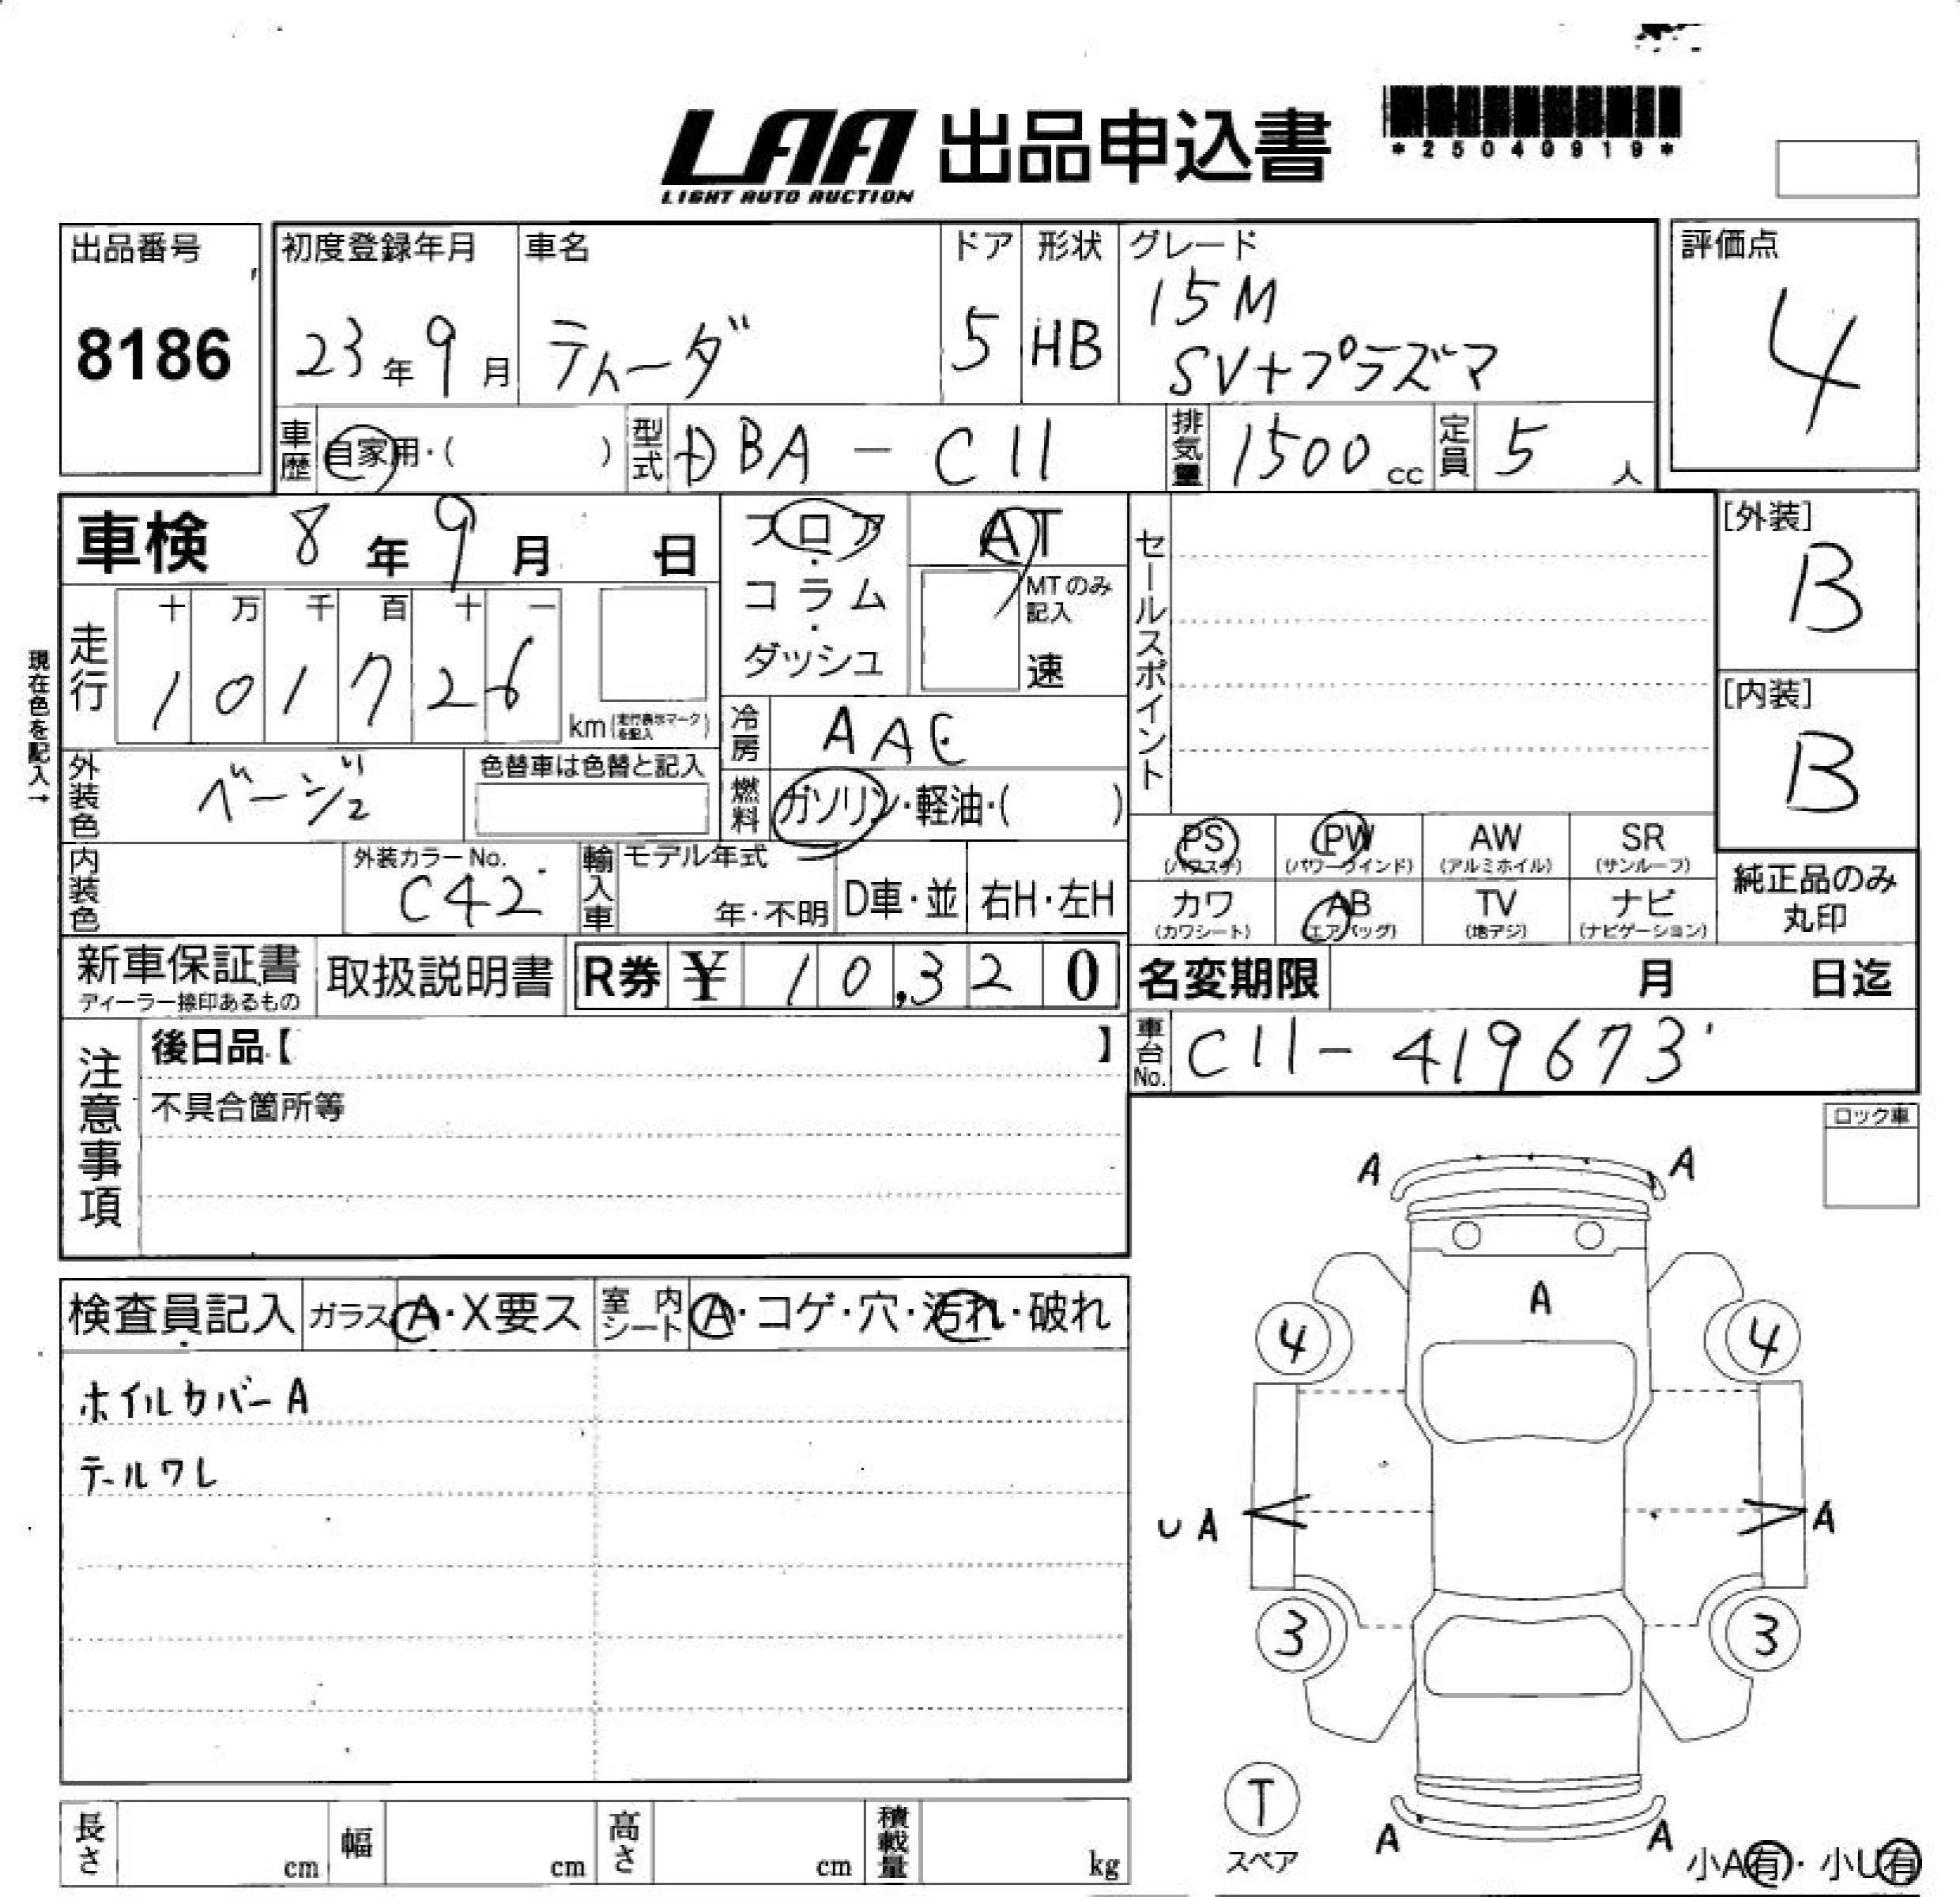 LAA 出品申込書
LIGHT AUTO AUCTION
*25040919*
出品番号
8186
初度登録年月
23年9月
車名
ティーダ
ドア
5
形状
HB
グレード
15M
SV+プラズマ
評価点
4
車歴
自家用・( )
型式
DBA-C11
排気量
1500cc
定員
5人
車検 8年9月 日
フロア・コラム・ダッシュ
AT
MTのみ記入
速
セールスポイント
[外装]
B
現在色を記入→
走行
十 万 千 百 十 一
1 0 1 7 2 6
km(走行表示マークを記入)
冷房
AAC
[内装]
B
外装色
ベージュ
色替車は色替と記入
燃料
ガソリン・軽油・( )
PS (パワステ)
PW (パワーウインド)
AW (アルミホイル)
SR (サンルーフ)
内装色
外装カラーNo.
C42
輸入車
モデル年式
年・不明
D車・並
右H・左H
カワ (カワシート)
AB (エアバッグ)
TV (地デジ)
ナビ (ナビゲーション)
純正品のみ丸印
新車保証書
ディーラー捺印あるもの
取扱説明書
R券 ¥ 10,320
名変期限 月 日迄
注意事項
後日品【 】
不具合箇所等
車台No.
C11-419673
ロック車
検査員記入
ガラス A・X要ス
室内シート A・コゲ・穴・汚れ・破れ
ホイルカバーA
テールワレ
A A
A
4 4
UA A
3 3
T
スペア
A A
小A有・小U有
長さ cm
幅 cm
高さ cm
積載量 kg